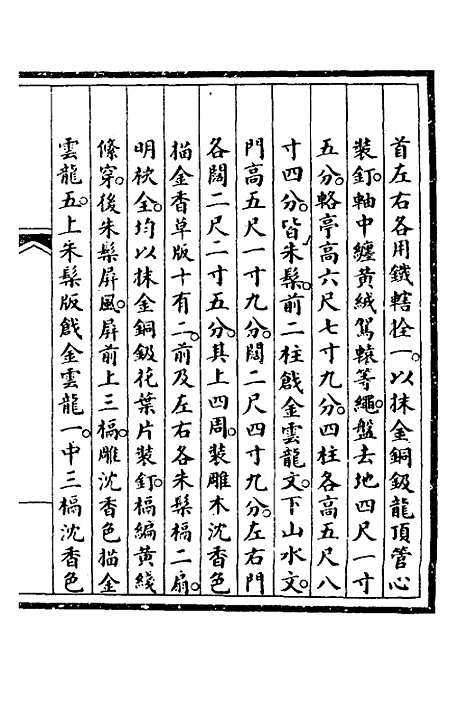 首左右各用鐵轄拴一。以抹金銅鈒龍頂管心
裝釘。軸中纏黃絨駕轅等繩。盤去地四尺一寸
五分。輅亭高六尺七寸九分。四柱各高五尺八
寸四分。皆朱髹。前二柱戧金雲龍文。下山水文。
門高五尺一寸九分。闊二尺四寸九分。左右門
各闊二尺二寸五分。其上四周。裝雕木沈香色
描金香草版十有二。前及左右各朱髹槅二扇。
明栨全。均以抹金銅鈒花葉片裝釘。槅編黃綫
絛穿。後朱髹屏風。屏前上三槅。雕沈香色描金
雲龍五。上朱髹版戧金雲龍一。中三槅沈香色